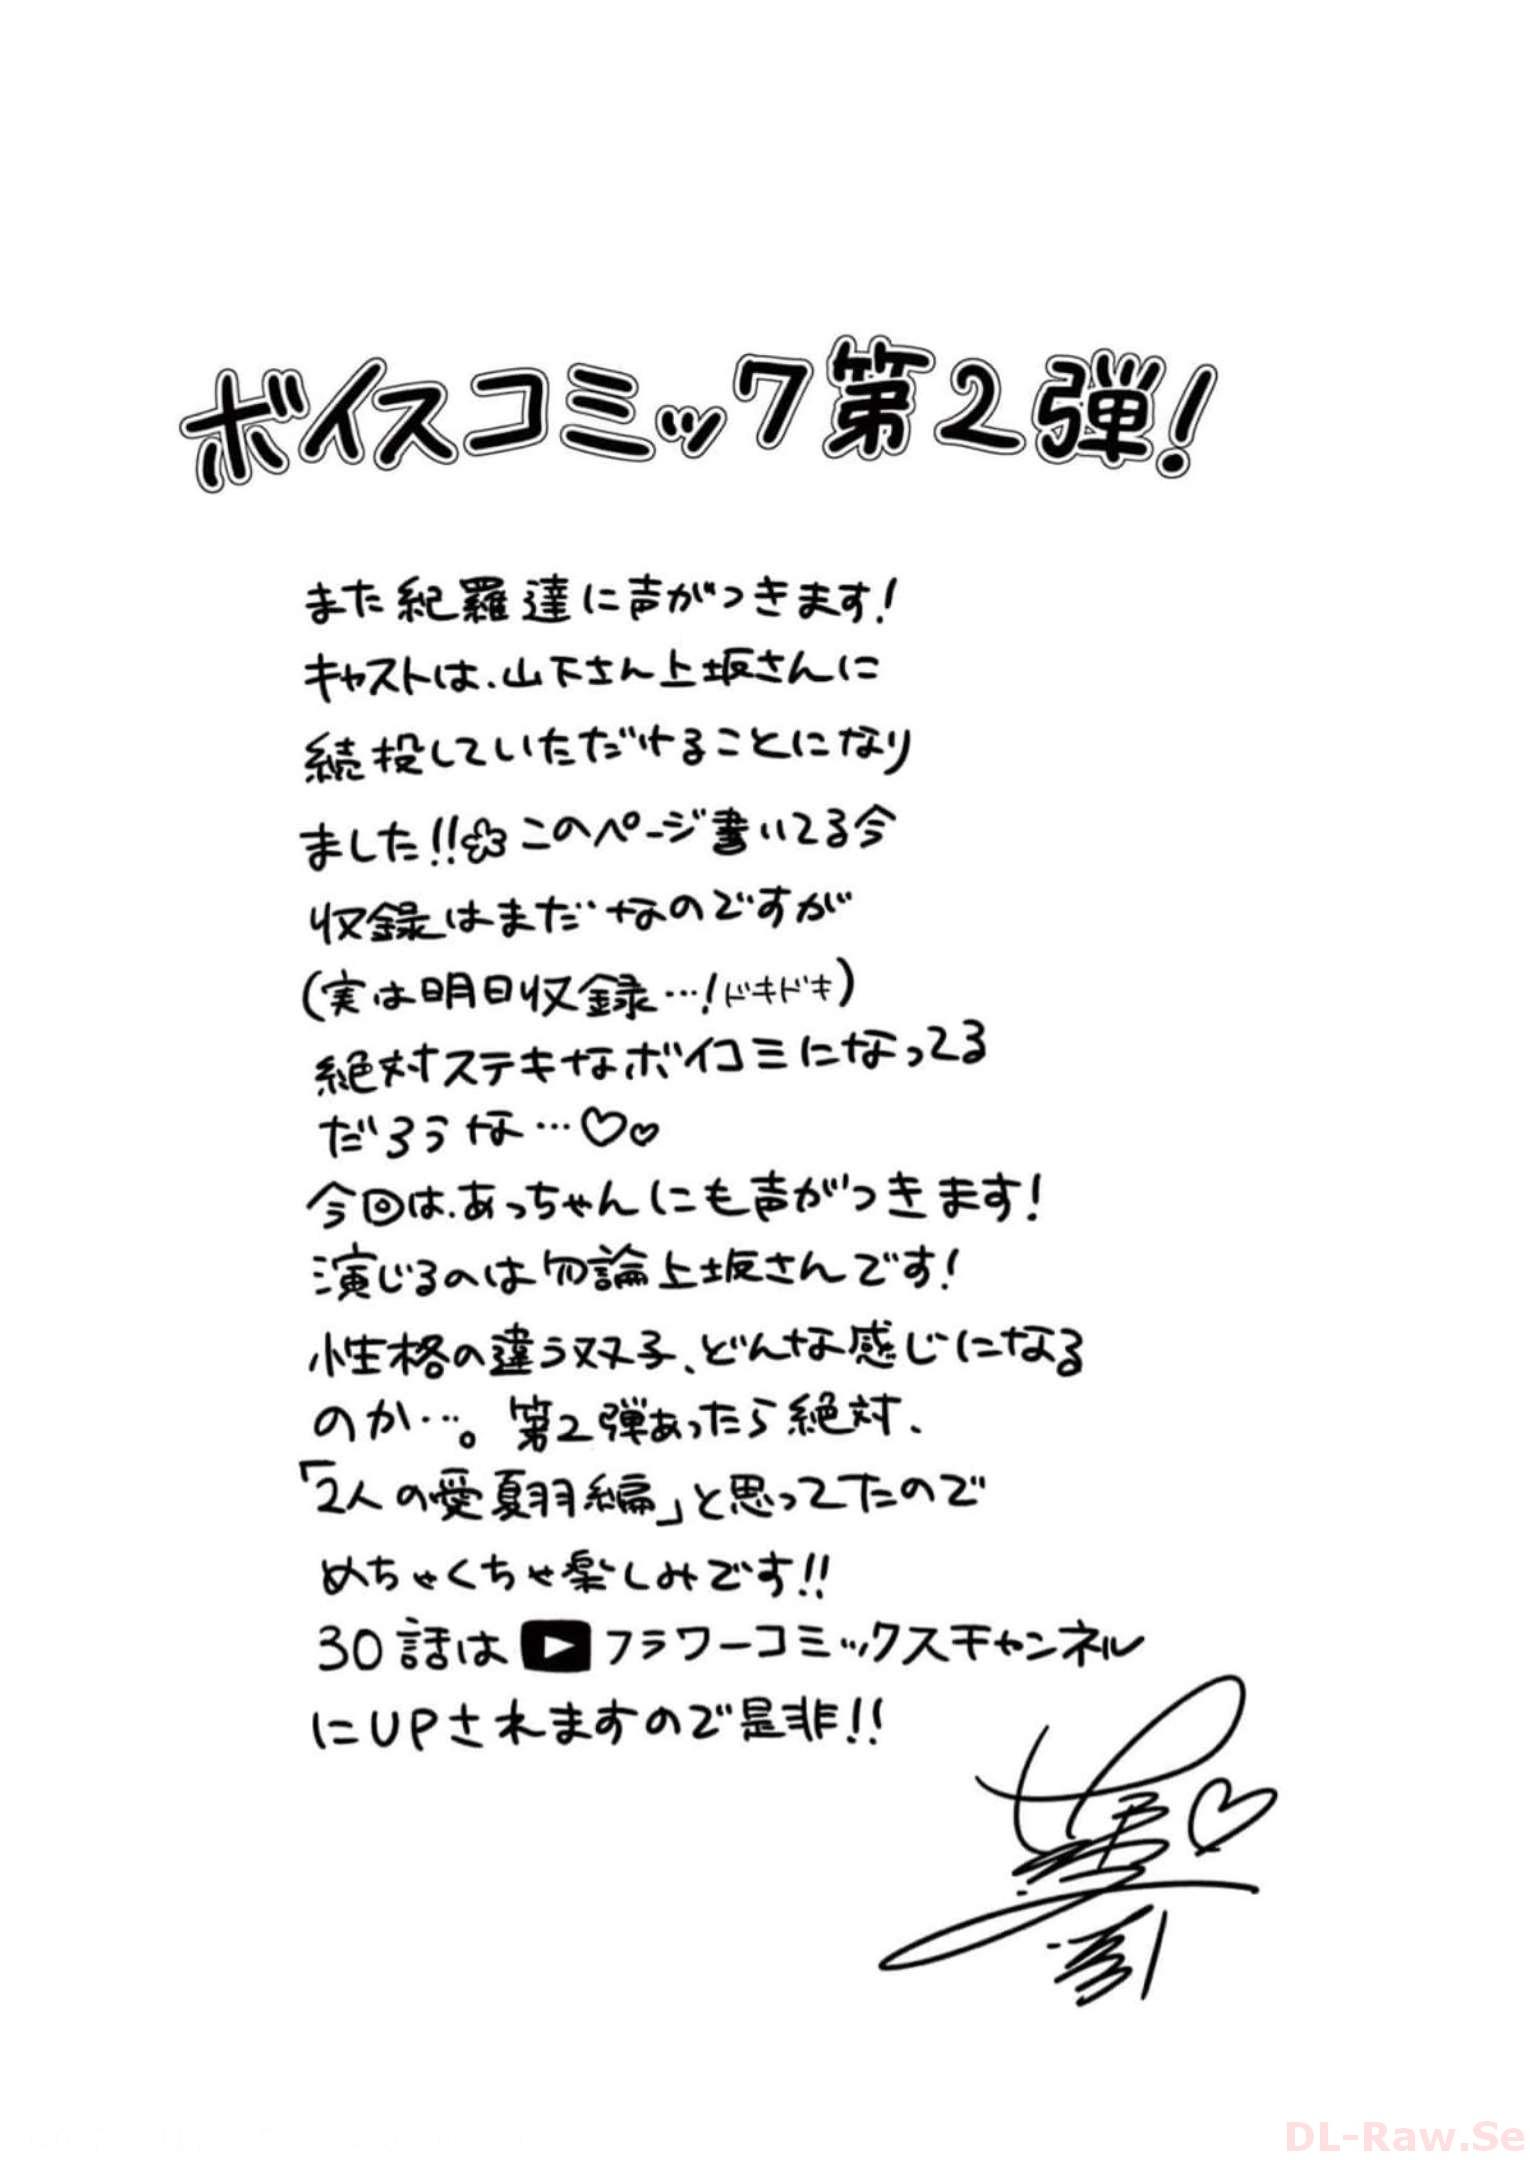 ボイスコミック第2弾!
また紀羅達に声がつきます!
キャストは、山下さん上坂さんに
続投していただけることになり
ました!!このページ書いてる今
収録はまだなのですが
(実は明日収録…!ドキドキ)
絶対ステキなボイコミになってる
だろうな…♡♡
今回は、あっちゃんにも声がつきます!
演じるのは勿論上坂さんです!
性格の違う双子、どんな感じになる
のか…。第2弾あったら絶対、
「2人の愛夏羽編」と思ってたので
めちゃくちゃ楽しみです!!
30話は▶フラワーコミックスチャンネル
にUPされますので是非!!
DL-Raw.Se